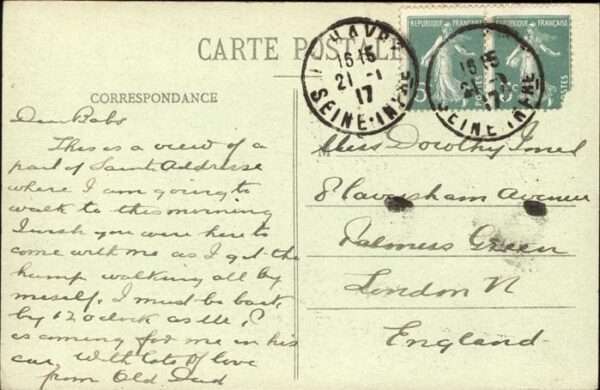 CARTE POSTALE
CORRESPONDANCE
REPUBLIQUE FRANÇAISE
REPUBLIQUE FRANÇAISE
POSTES
5c
HAVRE
16 15
21 - 1
17
SEINE-INFRE
16 15
21 - 1
17
SEINE-INFRE
Dear Babs
This is a view of a
part of Saint Addresse
where I am going to
walk to this morning
I wish you were here to
come with me as I get the
hump walking all by
meself. I must be back
by 12 oclock as
is coming for me in his
car, With lots of love
from Old Dad
Miss Dorothy Jones
8 Caversham Avenue
Palmers Green
London N
England